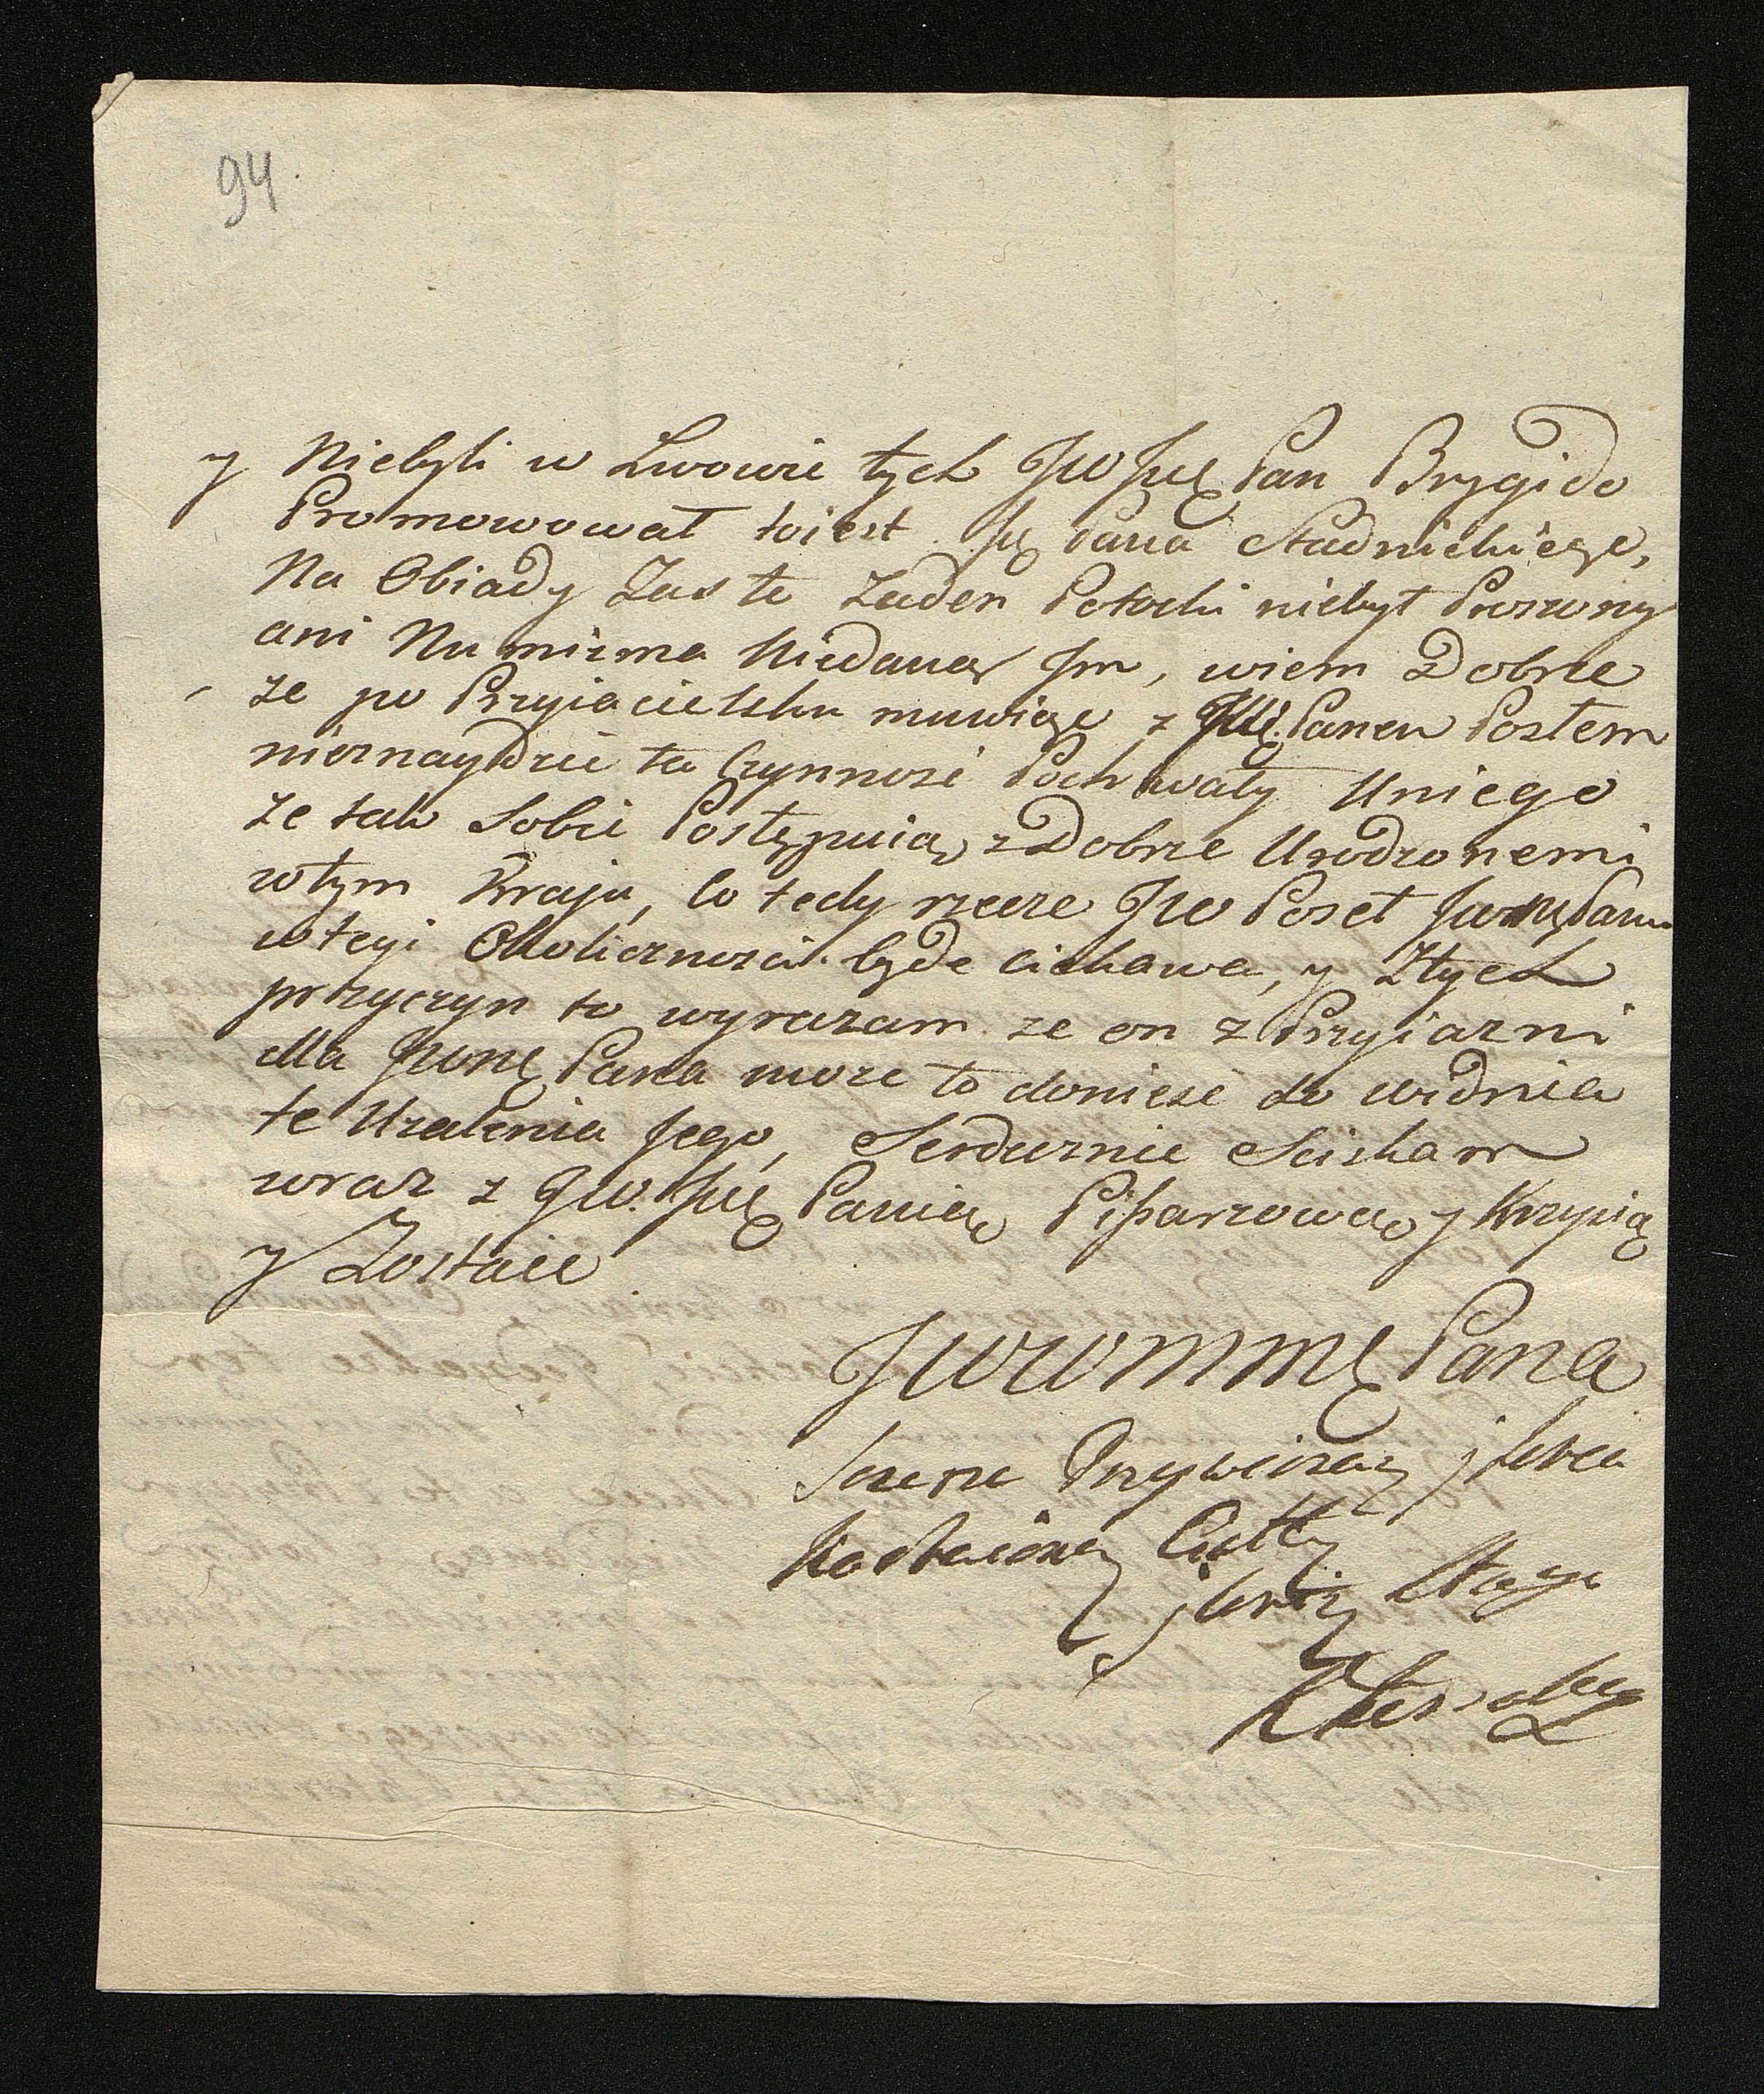 94
y Niebyli w Lwowie tych JWJmę Pan Brygido
Promowował toiest Jmę Pana Stadnickiego,
Na Obiady Zaś te Zaden Potocki niebył Proszony
ani Numizma Niedana Jm, wiem Dobrze
ze po Przyiacielsku muwiąc z JWJmę. Panem Posłem
nieznaydzie ta Czynność Pochwały Uniego
ze tak Sobie Postępuią z Dobrze Urodzonemi
wtym Kraju, Co tedy rzecze JW Poseł JWWmę Panu
wtey Okoliczności będe ciekawa, y Ztych
przyczyn to wyrazam ze on z Przyiazni
dla JWWmę Pana moze to donieść do Widnia
te Uzalenia Jego, Serdecznie Sciskam
wraz z JW. Jmę Panią Pisarzową y Krzysią
y Zostaie
JWWMMę Pana
Szczerze Przywiązaną
Ciotką
Sługą